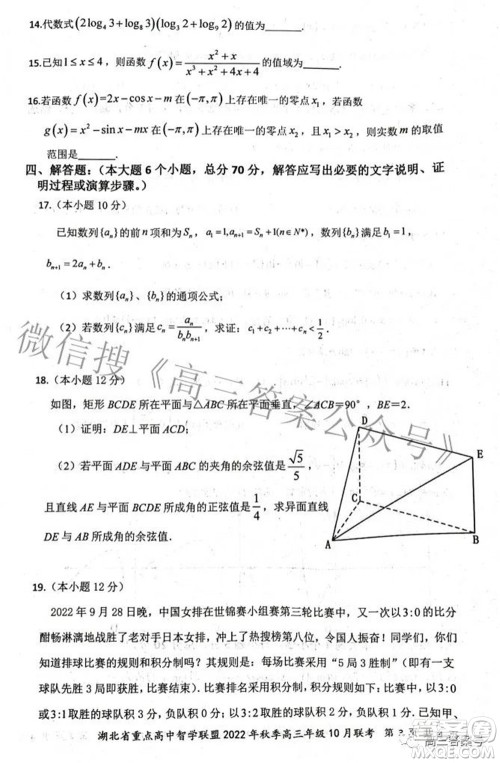 14.代数式(2log₄3+log₈3)(log₃2+log₉2)的值为______.
15.已知1≤x≤4，则函数f(x)=(x²+x)/(x³+x²+4x+4)的值域为______.
16.若函数 f(x)=2x−cos x−m 在(−π,π)上存在唯一的零点x₁，若函数
g(x)=x²−sin x−mx 在(−π,π)上存在唯一的零点x₂，且x₁<x₂，则实数m的取值
范围是______.
四、解答题：（本大题 6 个小题，总分 70 分，解答应写出必要的文字说明、证
明过程或演算步骤。）
17.（本小题 10 分）
已知数列{aₙ}的前n项和为Sₙ，a₁=1,
(n∈N*)，数列{bₙ}满足b₁=1，
bₙ₊₁=2aₙ+bₙ．
（1）求数列{aₙ}、{bₙ}的通项公式；
（2）若数列{cₙ}满足cₙ=aₙ/(bₙbₙ₊₁)，求证：c₁+c₂+⋯+cₙ<1/2．
18.（本小题 12 分）
如图，矩形 BCDE 所在平面与△ABC 所在平面垂直，∠ACB=90°，BE=2．
（1）证明：DE⊥平面 ACD；
（2）若平面 ADE 与平面 ABC 的夹角的余弦值是√5/5，
且直线 AE 与平面 BCDE 所成角的正弦值是1/4，求异面直线
DE 与 AB 所成角的余弦值．
D
E
C
A
B
19.（本小题 12 分）
2022 年 9 月 28 日晚，中国女排在世锦赛小组赛第三轮比赛中，又一次以3:0的比分
酣畅淋漓地战胜了老对手日本女排，冲上了世界排名第八位，令国人振奋！同学们，你们
知道排球比赛的规则和积分制吗？其规则是：每场比赛采用“5 局 3 胜制”（即有一支
球队先胜 3 局即获胜，比赛结束）．比赛积分制是：比赛中以3:0或3:1取胜的球
湖北省重点高中智学联盟 2022 年秋季高三年级 10 月联考
微信搜《高三答案公众号》